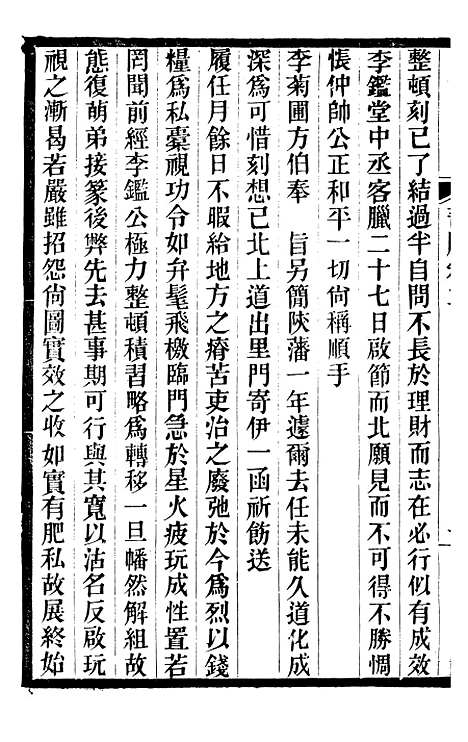 整頓刻已了結過半自問不長於理財而志在必行似有成效
李鑑堂中丞客臘二十七日啟節而北願見而不可得不勝惆
悵仲帥公正和平一切尙稱順手
李菊圃方伯奉　旨另簡陝藩一年遽爾去任未能久道化成
深爲可惜刻想已北上道出里門寄伊一函祈飭送
履任月餘日不暇給地方之瘠苦吏治之廢弛於今爲烈以錢
糧爲私橐視功令如弁髦飛檄臨門急於星火疲玩成性置若
罔聞前經李鑑公極力整頓積習略爲轉移一旦幡然解組故
態復萌弟接篆後弊先去甚事期可行與其寬以沽名反啟玩
視之漸曷若嚴雖招怨尙圖實效之收如實有肥私故展終始